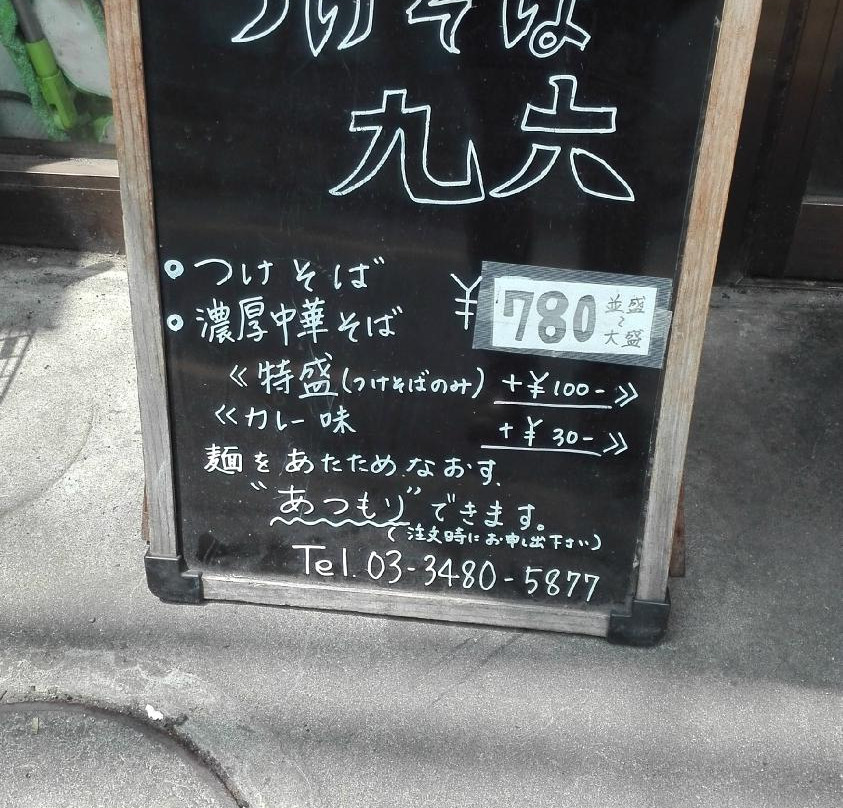 つけそば
九六
• つけそば
• 濃厚中華そば
¥780 並盛〜大盛
《特盛(つけそばのみ) +¥100-》
《カレー味 +¥30-》
麺をあたためなおす、
“あつもり”できます。
(注文時にお申し出下さい)
Tel. 03-3480-5877